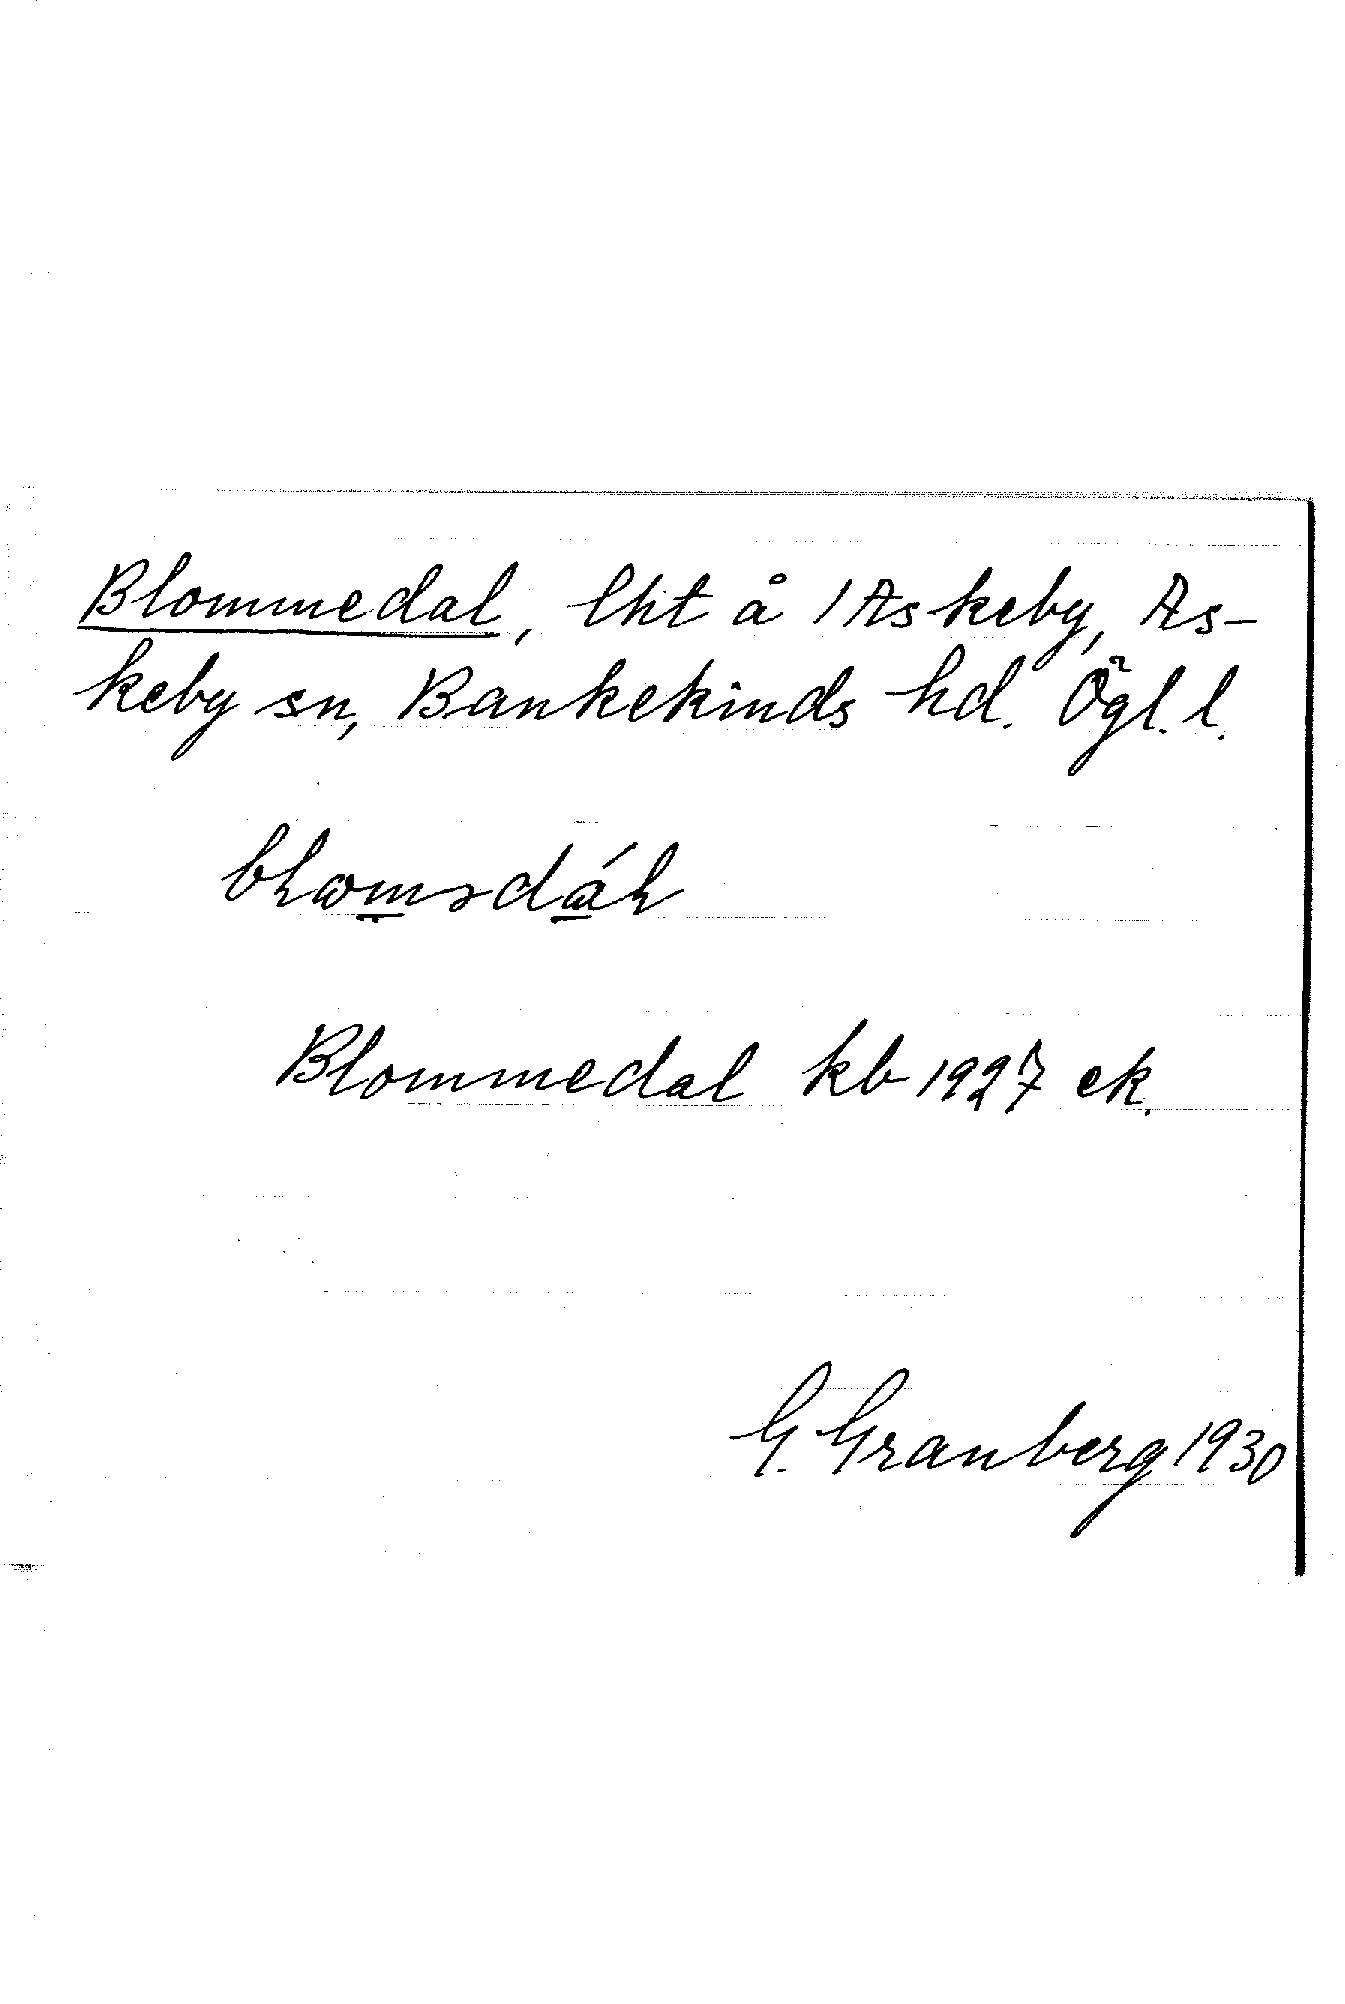 Blommedal, lht å 1 Askeby, As-
keby sn, Bankekinds hd. Ögl. l.
Blommedal kb 1927 ek.
G. Granberg 1930